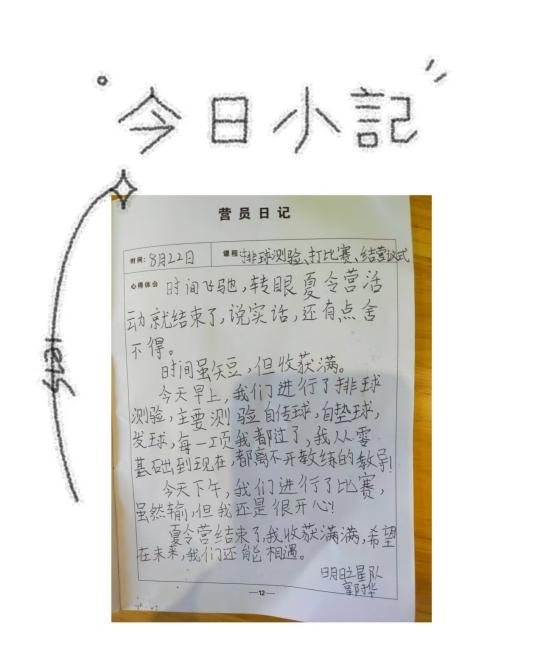 今日小記
营员日记
时间:8月22日 课程:排球测验、打比赛、结营仪式
心得体会 时间飞驰,转眼夏令营活
动就结束了,说实话,还有点舍
不得。
时间虽短,但收获满。
今天早上,我们进行了排球
测验,主要测验自传球,自垫球,
发球,每一项我都过了,我从零
基础到现在,都离不开教练的教导!
今天下午,我们进行了比赛,
虽然输,但我还是很开心!
夏令营结束了,我收获满满,希望
在未来,我们还能相遇。
明日之星队
—12—